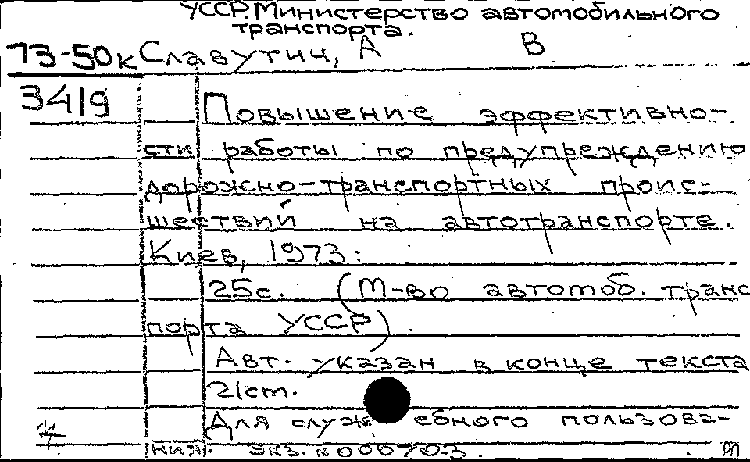 УССР. Министерство автомобильного
транспорта.
73-50к Славутич, А В
3419
Повышение эффективно-
сти работы по предупреждению
дорожно-транспортных проис-
шествий на автотранспорте.
Киев, 1973.
25с. (М-во автомоб. транс
порта УССР).
Авт. указан в конце текста
21cm.
Для служебного пользова-
ния. Экз. N000703.